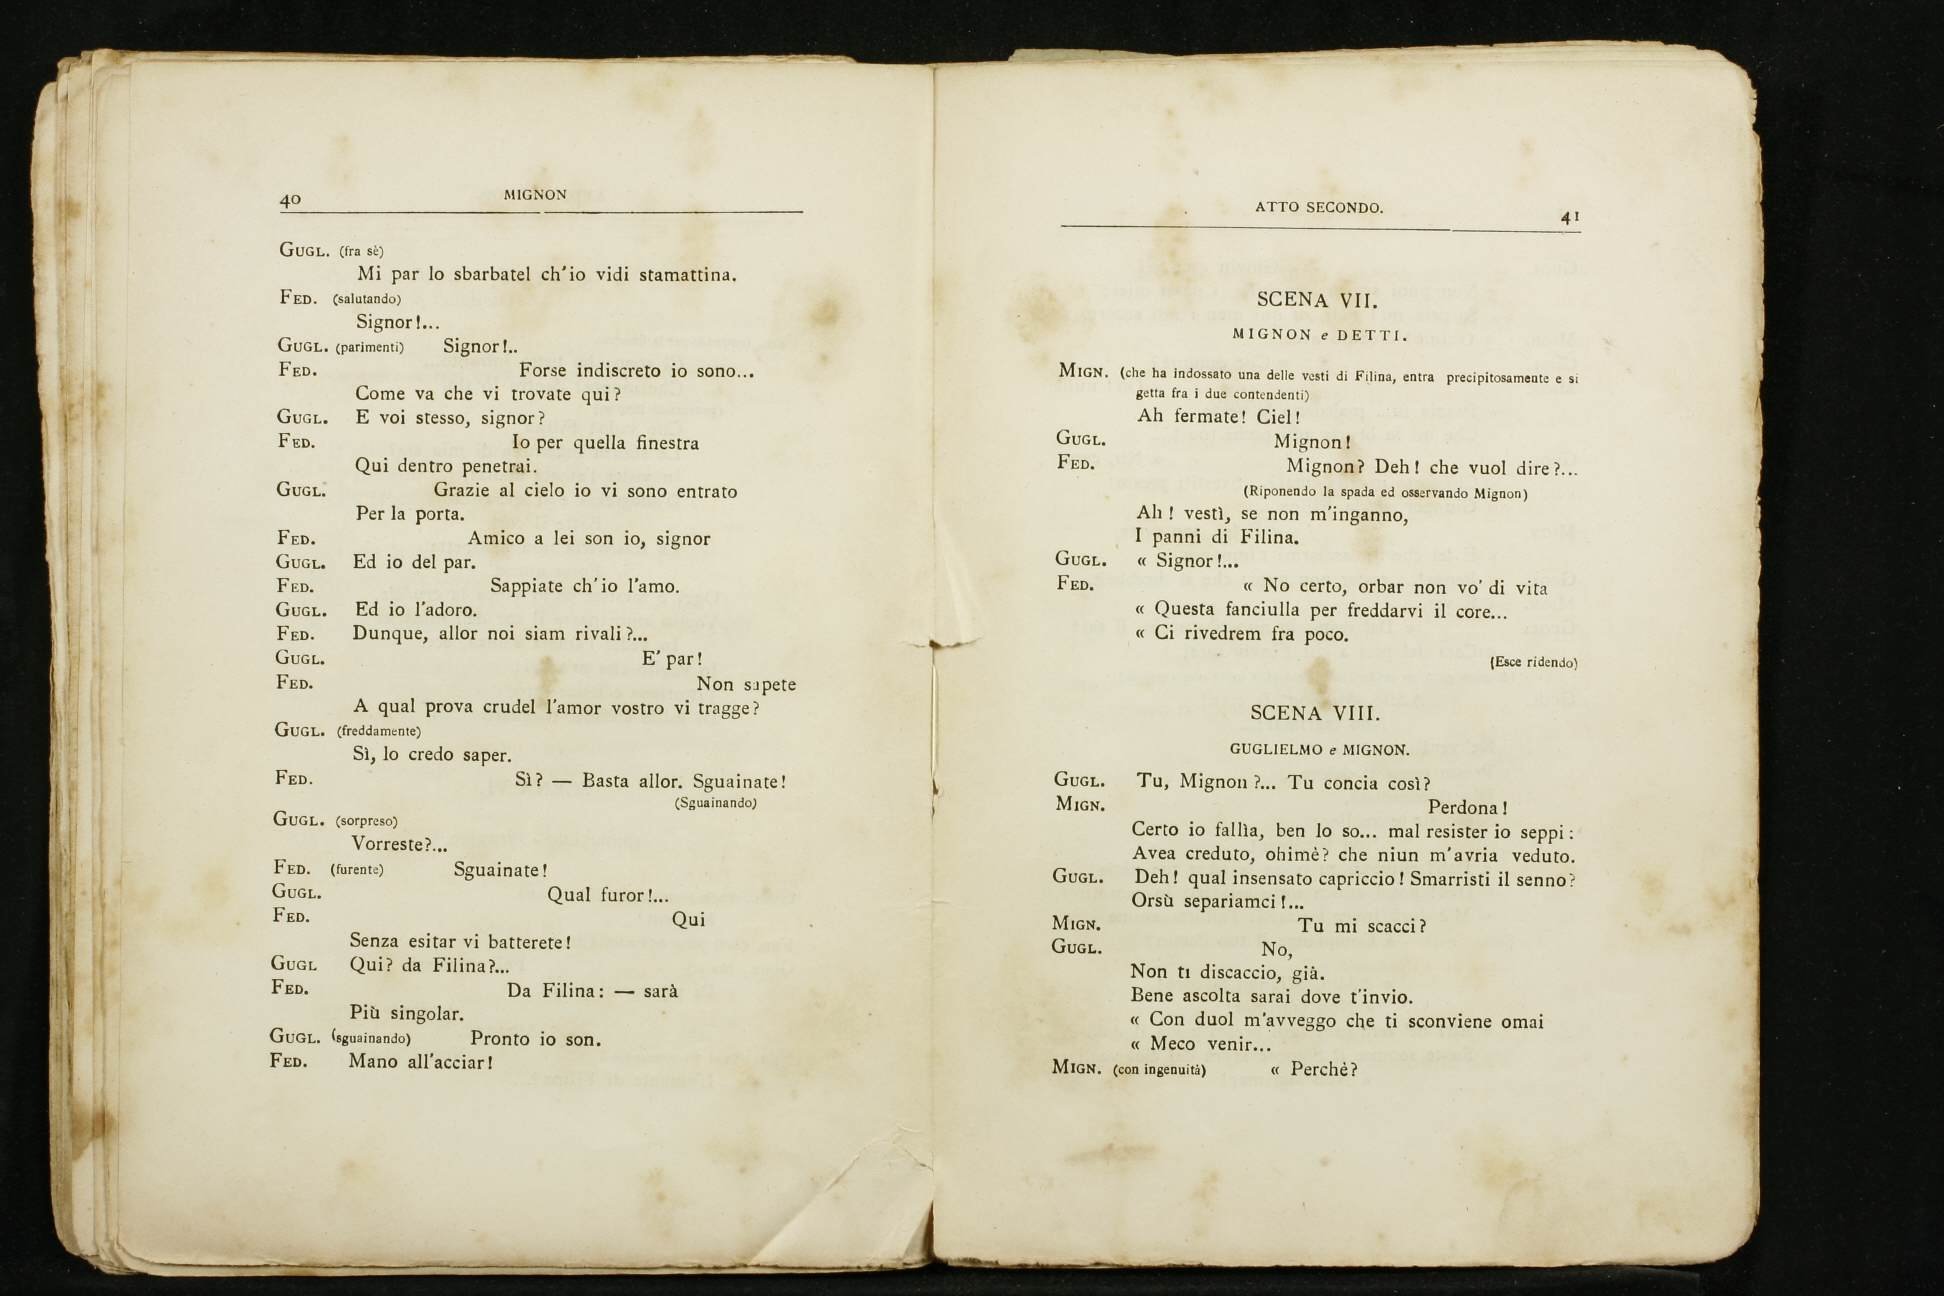 40
MIGNON
GUGL. (fra sè)
Mi par lo sbarbatel ch'io vidi stamattina.
FED. (salutando)
Signor!...
GUGL. (parimenti) Signor!..
FED. Forse indiscreto io sono...
Come va che vi trovate qui?
GUGL. E voi stesso, signor?
FED. Io per quella finestra
Qui dentro penetrai.
GUGL. Grazie al cielo io vi sono entrato
Per la porta.
FED. Amico a lei son io, signor
GUGL. Ed io del par.
FED. Sappiate ch'io l'amo.
GUGL. Ed io l'adoro.
FED. Dunque, allor noi siam rivali?...
GUGL. E' par!
FED. Non sapete
A qual prova crudel l'amor vostro vi tragge?
GUGL. (freddamente)
Sì, lo credo saper.
FED. Sì? — Basta allor. Sguainate!
(Sguainando)
GUGL. (sorpreso)
Vorreste?...
FED. (furente) Sguainate!
GUGL. Qual furor!...
FED. Qui
Senza esitar vi batterete!
GUGL Qui? da Filina?...
FED. Da Filina: — sarà
Più singolar.
GUGL. (sguainando) Pronto io son.
FED. Mano all'acciar!
ATTO SECONDO.
41
SCENA VII.
MIGNON e DETTI.
MIGN. (che ha indossato una delle vesti di Filina, entra precipitosamente e si
getta fra i due contendenti)
Ah fermate! Ciel!
GUGL. Mignon!
FED. Mignon? Deh! che vuol dire?...
(Riponendo la spada ed osservando Mignon)
Ah! vestì, se non m'inganno,
I panni di Filina.
GUGL. « Signor!...
FED. « No certo, orbar non vo' di vita
« Questa fanciulla per freddarvi il core...
« Ci rivedrem fra poco.
(Esce ridendo)
SCENA VIII.
GUGLIELMO e MIGNON.
GUGL. Tu, Mignon?... Tu concia così?
MIGN. Perdona!
Certo io fallìa, ben lo so... mal resister io seppi:
Avea creduto, ohimè? che niun m'avria veduto.
GUGL. Deh! qual insensato capriccio! Smarristi il senno?
Orsù separiamci!...
MIGN. Tu mi scacci?
GUGL. No,
Non ti discaccio, già.
Bene ascolta sarai dove t'invio.
« Con duol m'avveggo che ti sconviene omai
« Meco venir...
MIGN. (con ingenuità) « Perchè?